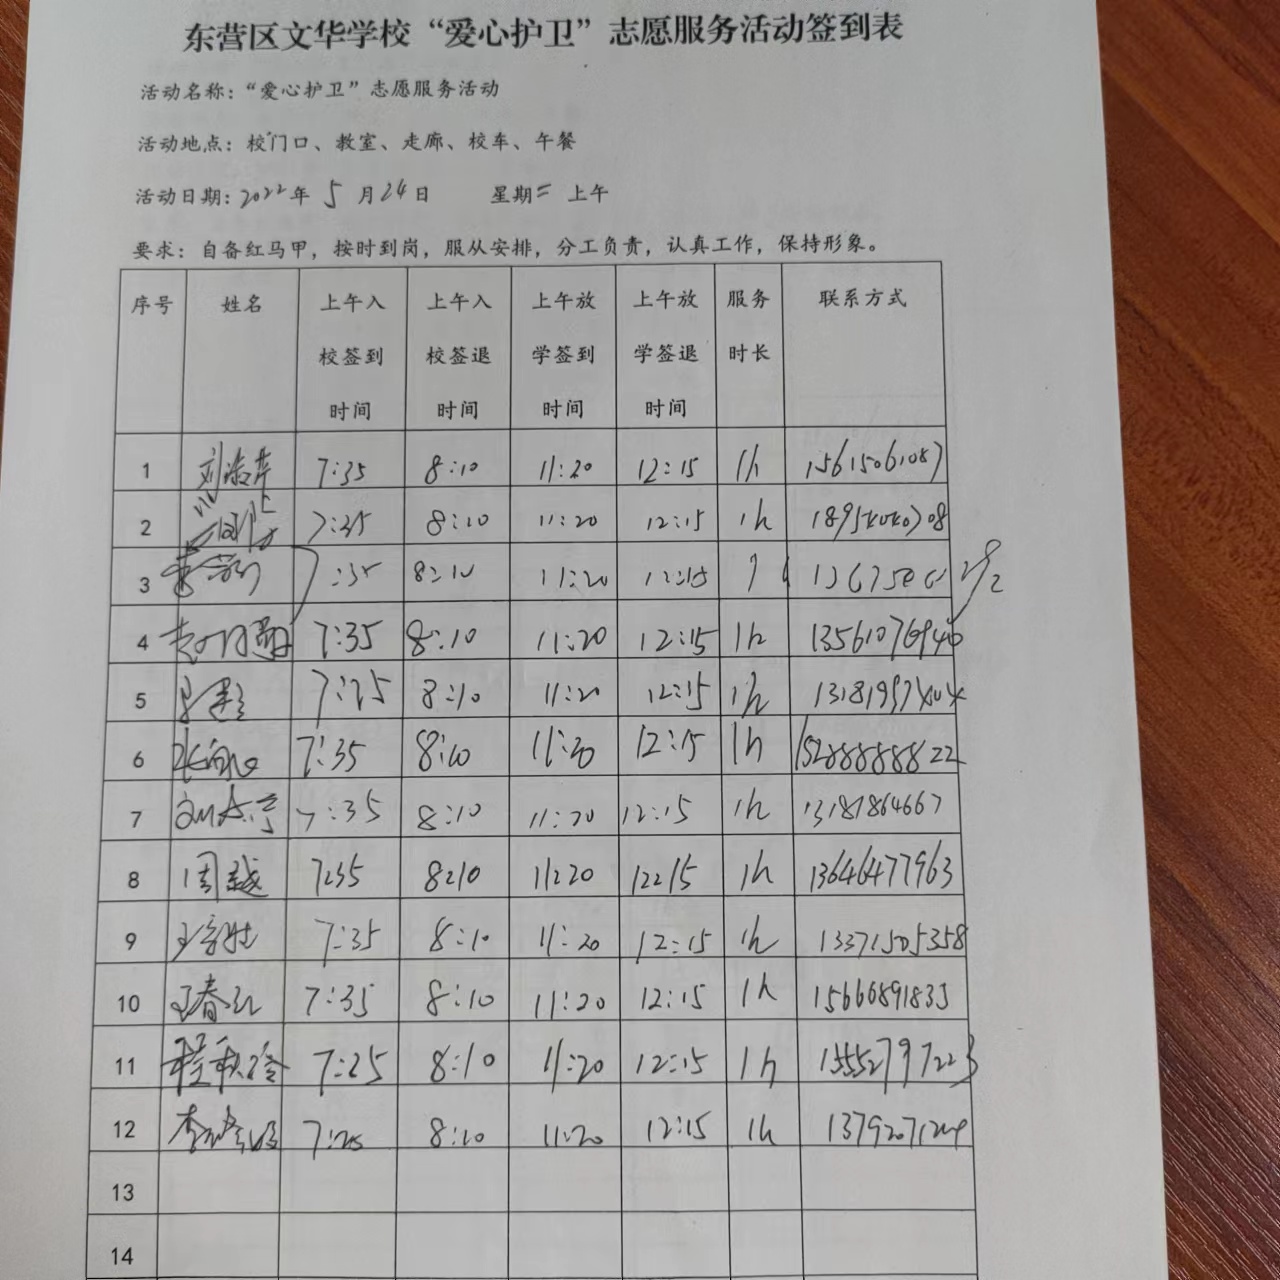 东营区文华学校“爱心护卫”志愿服务活动签到表
活动名称：“爱心护卫”志愿服务活动
活动地点：校门口、教室、走廊、校车、午餐
活动日期：2022年 5 月24日 星期二 上午
要求：自备红马甲，按时到岗，服从安排，分工负责，认真工作，保持形象。
序号 姓名 上午入校签到时间 上午入校签退时间 上午放学签到时间 上午放学签退时间 服务时长 联系方式
1 7:35 8:10 11:20 12:15 1h 15615061087
2 7:35 8:10 11:20 12:15 1h
3 7:35 8:10 11:20 12:15
4 7:35 8:10 11:20 12:15 1h 13561076940
5 8:10 11:20 12:15 1h
6 7:35 8:10 12:15 1h 15288888822
7 7:35 8:10 11:20 12:15 1h 13181864667
8 周越 7:35 8:10 11:20 12:15 1h 13646477963
9 7:35 8:10 11:20 12:15 1h 13371505358
10 王春 7:35 8:10 11:20 12:15 1h 15666891835
11 程秋玲 7:25 8:10 11:20 12:15 1h 15552797223
12 8:10 11:20 12:15 1h
13
14